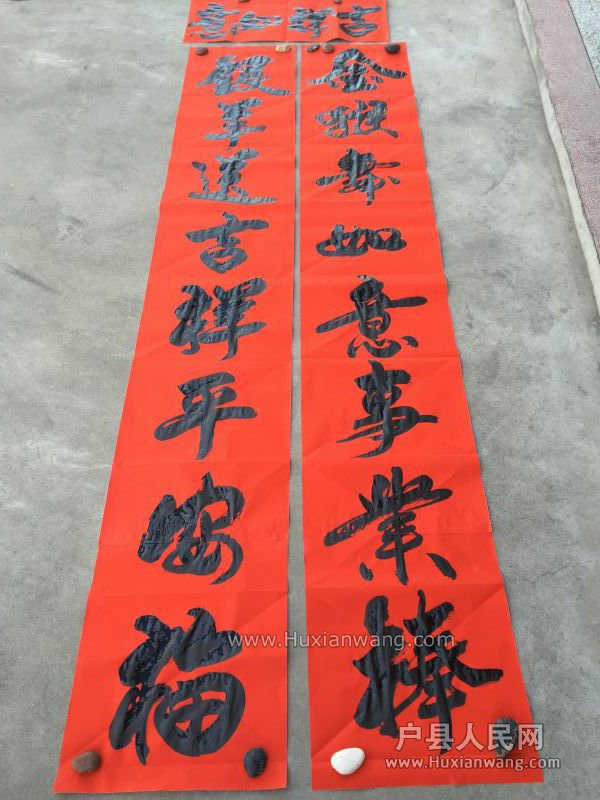 吉祥如意
金猴舞如意事業棒
運吉祥平安福
www.Huxianwang.com
户县人民网
www.Huxianwang.com